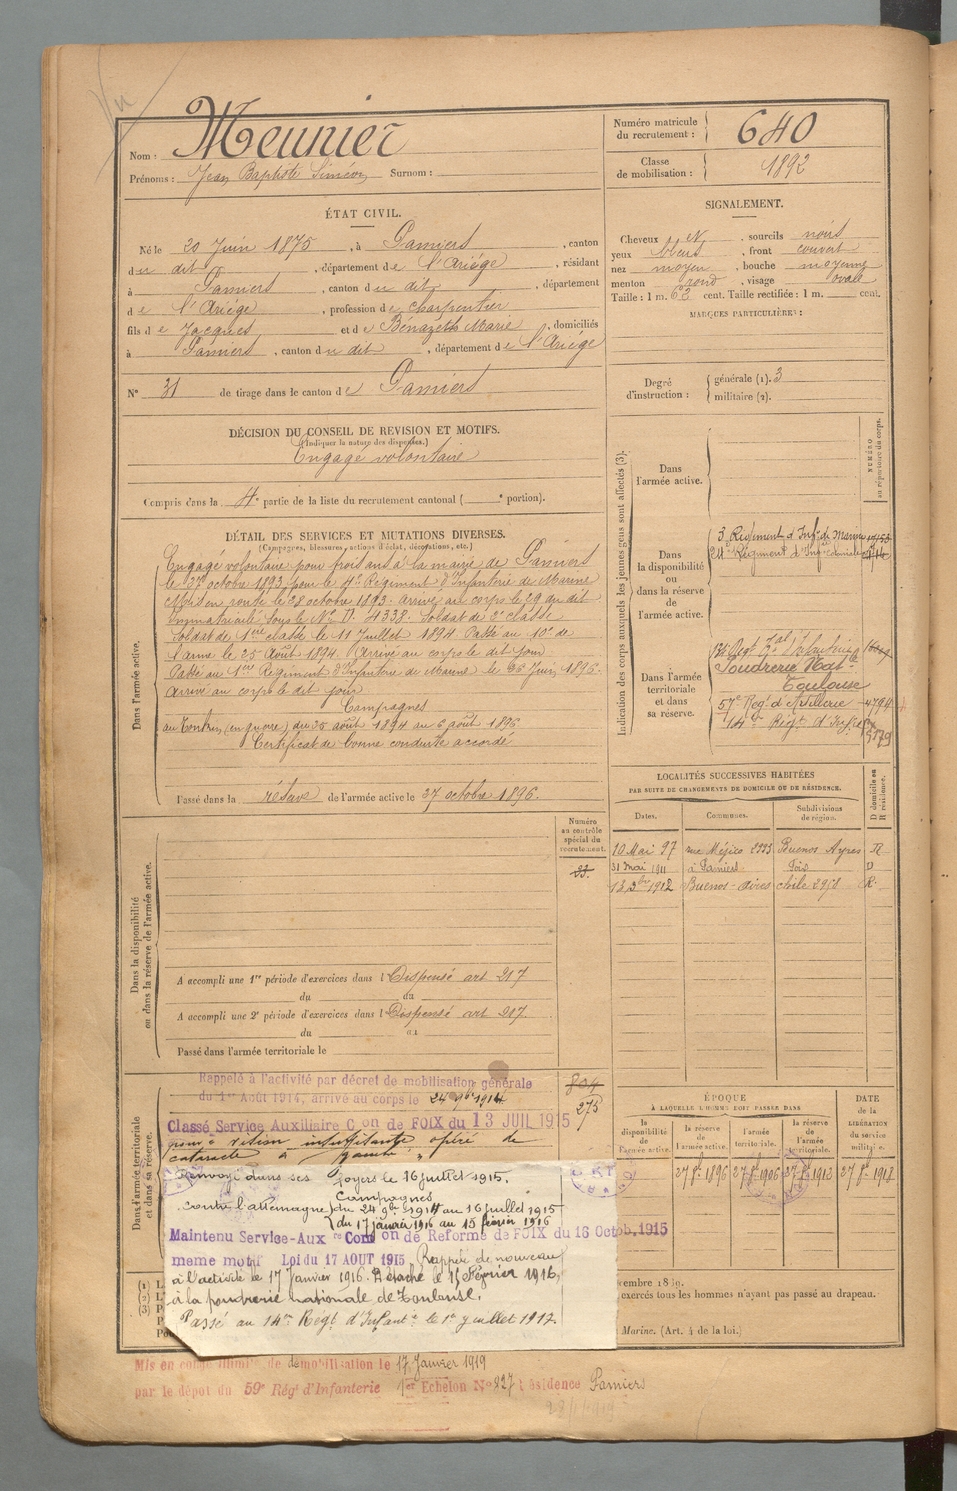 Vu
Nom : Meunier
Prénoms : Jean Baptiste Siméon Surnom :
Numéro matricule du recrutement : 640
Classe de mobilisation : 1892
ÉTAT CIVIL.
Né le 20 Juin 1875, à Pamiers, canton
du dit, département de l'Ariège, résidant
à Pamiers, canton du dit, département
de l'Ariège, profession de charpentier
fils de Jacques et de Bénazeth Marie, domiciliés
à Pamiers, canton du dit, département de l'Ariège
N° 31 de tirage dans le canton de Pamiers
SIGNALEMENT.
Cheveux et sourcils noirs
yeux bleus, front couvert
nez moyen, bouche moyenne
menton rond, visage ovale
Taille : 1 m. 62 cent. Taille rectifiée : 1 m. cent.
MARQUES PARTICULIÈRES :
Degré d'instruction : générale (1). 3
militaire (2).
DÉCISION DU CONSEIL DE REVISION ET MOTIFS.
(Indiquer la nature des dispenses.)
Engagé volontaire
Compris dans la 4e partie de la liste du recrutement cantonal ( e portion).
DÉTAIL DES SERVICES ET MUTATIONS DIVERSES.
(Campagnes, blessures, actions d'éclat, décorations, etc.)
Dans l'armée active.
Engagé volontaire pour trois ans à la mairie de Pamiers
le 27 octobre 1893 pour le 4e Régiment d'Infanterie de Marine
Mis en route le 28 octobre 1893. Arrivé au corps le 29 du dit
Immatriculé sous le N° 4338. Soldat de 2e classe
Soldat de 1ère classe le 11 Juillet 1894. Passé au 10e de
l'arme le 25 Août 1894. Arrivé au corps le dit jour
Passé au 1er Régiment d'Infanterie de Marine le 26 Juin 1896.
Arrivé au corps le dit jour
Campagnes
au Tonkin (en guerre) du 25 août 1894 au 6 août 1896
Certificat de bonne conduite accordé
Passé dans la réserve de l'armée active le 27 octobre 1896.
Indication des corps auxquels les jeunes gens sont affectés (3).
NUMÉRO au répertoire du corps.
Dans l'armée active.
Dans la disponibilité ou dans la réserve de l'armée active.
3 Régiment d'Infie de Marine
24e Régiment d'Infie coloniale
Dans l'armée territoriale et dans sa réserve.
Poudrerie Natle
Toulouse
57e Régt d'Artillerie 4794
14e Régt d'Infie 5179
LOCALITÉS SUCCESSIVES HABITÉES
PAR SUITE DE CHANGEMENTS DE DOMICILE OU DE RÉSIDENCE.
Dates. Communes. Subdivisions de région. D domicile ou R résidence.
10 Mai 97 rue Méjico 2223 Buenos Ayres R
31 mai 1911 à Pamiers Foix D
12 1912 Buenos-Aires chile 2958 R.
Dans la disponibilité ou dans la réserve de l'armée active.
Numéro au contrôle spécial du recrutement.
A accompli une 1re période d'exercices dans l Dispensé art 217
du au
A accompli une 2e période d'exercices dans l Dispensé art 217.
du au
Passé dans l'armée territoriale le
Dans l'armée territoriale et dans sa réserve.
Rappelé à l'activité par décret de mobilisation générale
du 1er Août 1914, arrivé au corps le 24 9bre 1914
804
275
Classé Service Auxiliaire Con de FOIX du 13 JUIL 1915
pour vision insuffisante opéré de
cataracte à
Renvoyé dans ses foyers le 16 juillet 1915.
Campagnes
Contre l'allemagne du 24 9bre 1914 au 16 juillet 1915
du 17 janvier 1916 au 15 février 1916
Maintenu Service-Aux re Comon de Réforme de FOIX du 16 Octob. 1915
meme motif Loi du 17 AOUT 1915 Rappelé de nouveau
à l'activité le 17 Janvier 1916. Détaché le 15 Février 1916,
à la poudrerie nationale de Toulouse.
Passé au 14me Régt d'Infante le 1er juillet 1917.
ÉPOQUE
À LAQUELLE L'HOMME DOIT PASSER DANS
la disponibilité de l'armée active. la réserve de l'armée active. l'armée territoriale. la réserve de l'armée territoriale.
DATE de la LIBÉRATION du service militaire.
27 8bre 1896 27 8bre 1906 27 8bre 1912 27 8bre 1918
(1)
(2)
(3)
exercés tous les hommes n'ayant pas passé au drapeau.
Marine. (Art. 4 de la loi.)
Mis en congé illimité de démobilisation le 17 Janvier 1919
par le dépôt du 59e Régt d'Infanterie 1er Echelon N° 927 résidence Pamiers